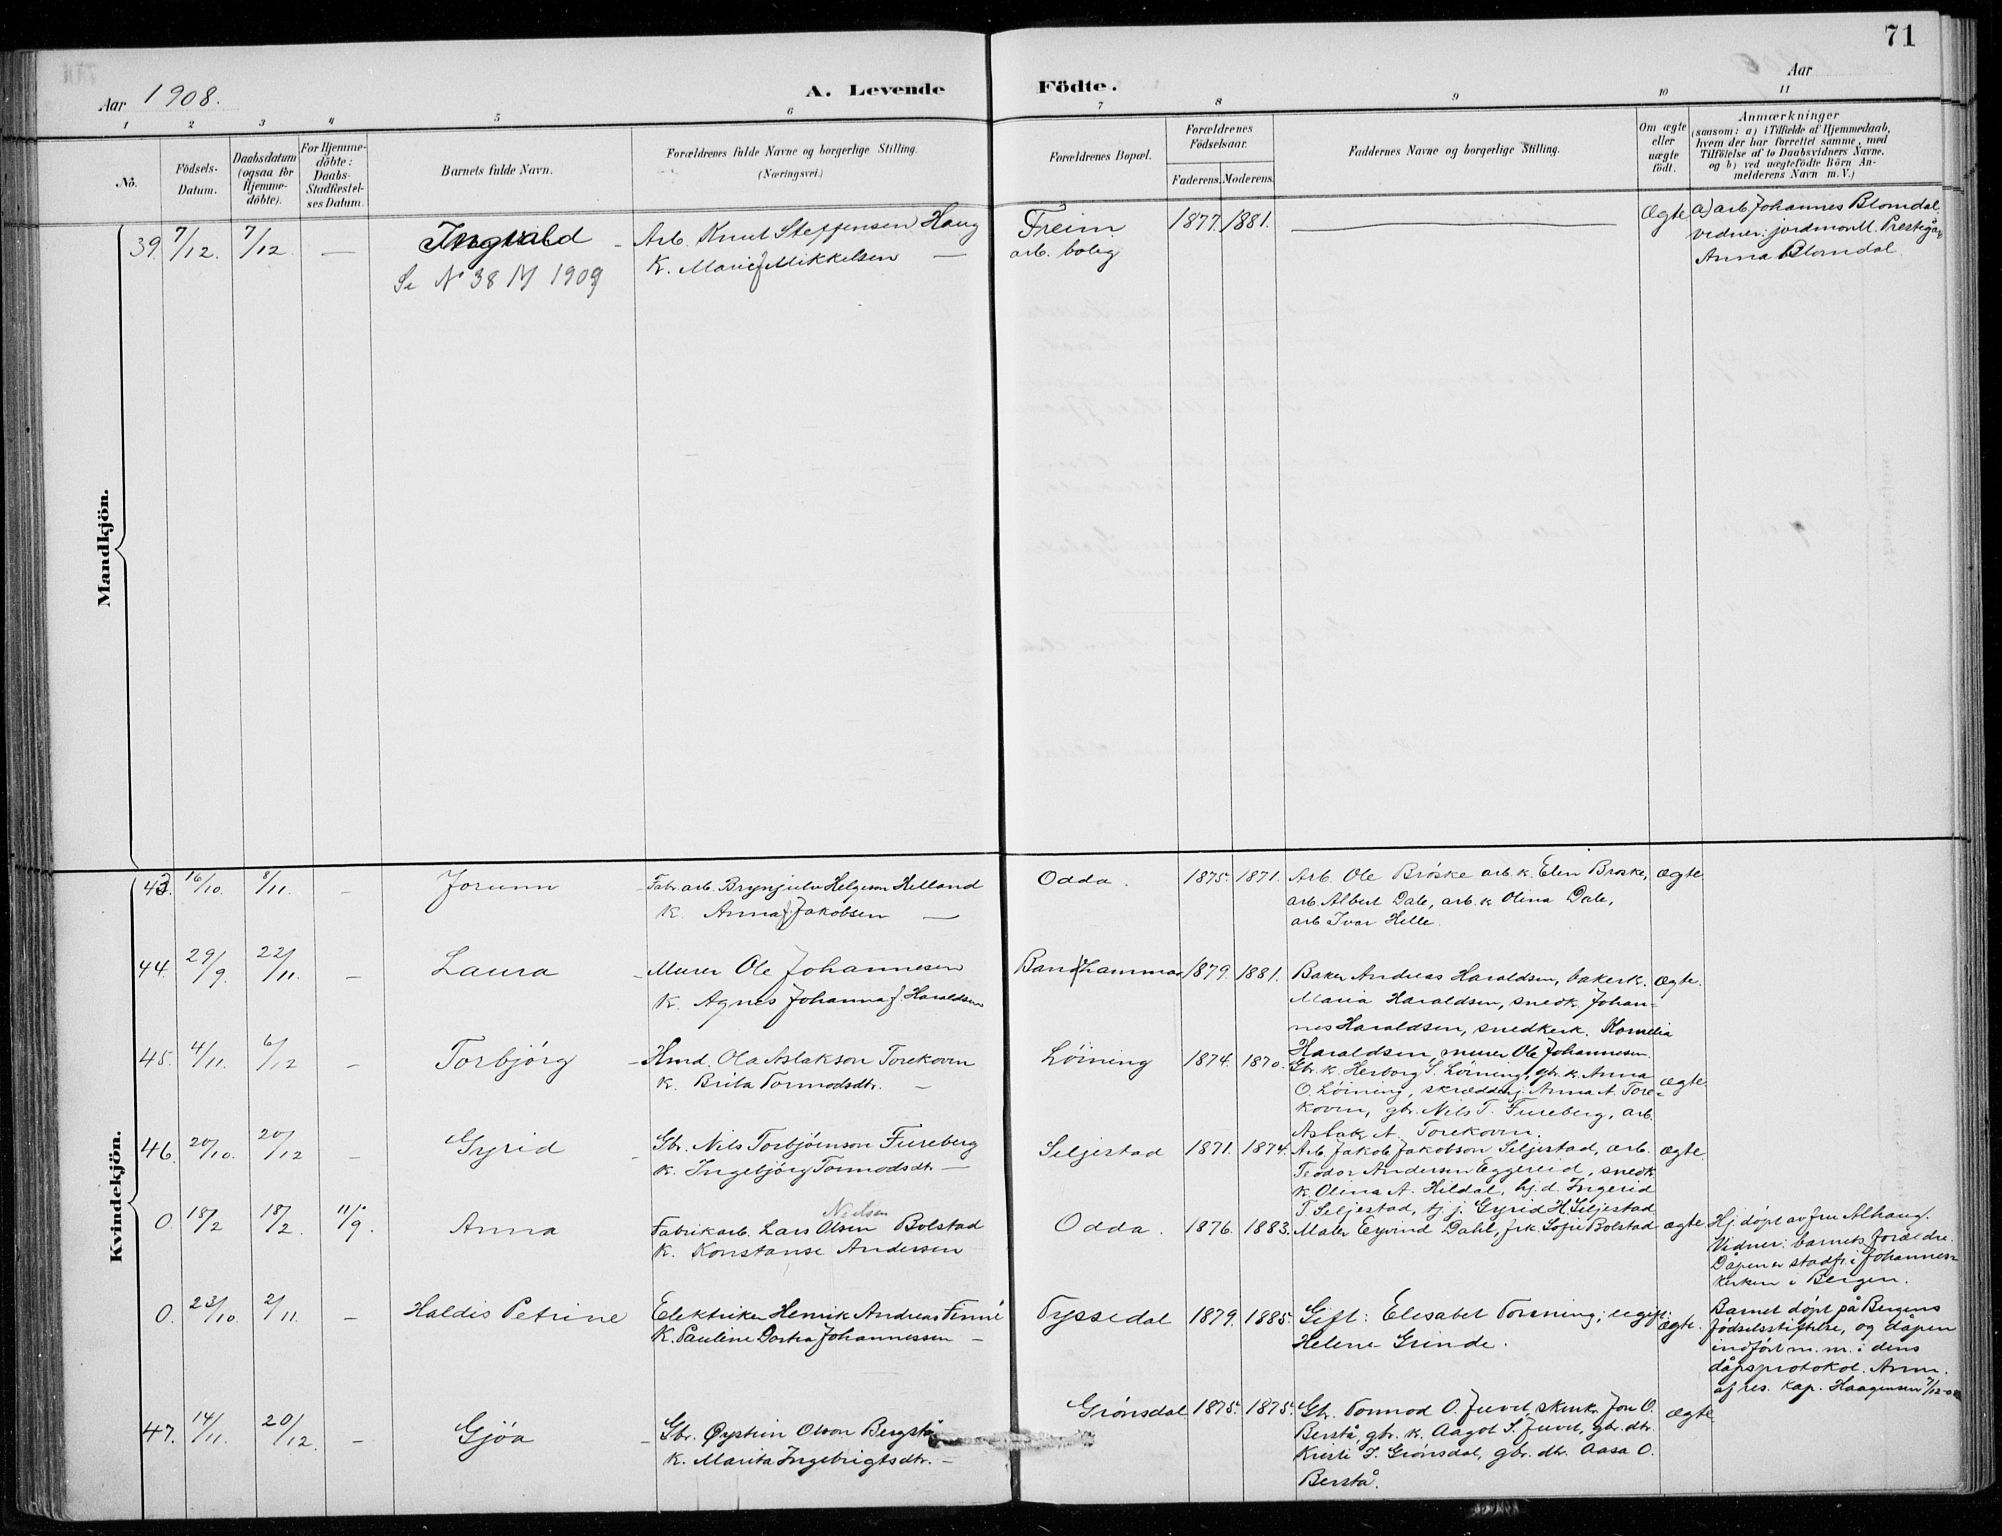 71
Aar 1908.
A. Levende Födte.
Aar
1 2 3 4 5 6 7 8 9 10 11
No.
Födsels-Datum.
Daabsdatum (ogsaa for Hjemme-döbte).
For Hjemme-döbte: Daabs-Stadfæstel-ses Datum.
Barnets fulde Navn.
Forældrenes fulde Navne og borgerlige Stilling.
(Næringsvei.)
Forældrenes Bopæl.
Forældrenes Födselsaar.
Faderens. Moderens.
Faddernes Navne og borgerlige Stilling.
Om ægte eller uægte födt.
Anmærkninger
(saasom: a) i Tilfælde af Hjemmedaab, hvem der har forrettet samme, med Tilföielse af to Daabsvidners Navne. og b) ved uægtefödte Börn An-melderens Navn m. V.)
Mandkjön.
39. 7/12. 7/12. — Ingvald
Se No 38 M 1909
Arb. Knut Steffensen Haug
K. Marie f Mikkelsen —
Freim
arb. bolig
1877. 1881.
Ægte
a) arb. Johannes Blomdal.
vidner: jordmor M. Prestegår,
Anna Blomdal.
Kvindekjön.
43. 16/10. 8/11. — Jorunn
Fabr. arb. Brynjulv Helgeson Helland
K. Anna f Jakobsen —
Odda. 1875. 1871.
Arb. Ole Brøske arb. k. Elen Brøske,
arb. Albert Dale, arb. k Olina Dale,
arb Ivar Helle.
Ægte
44. 29/9. 22/11. — Laura
Murer Ole Johannesen
K. Agnes Johanna f Haraldsen
1879. 1881.
Baker Andreas Haraldsen, bakerk.
Maria Haraldsen, snedk. Johan-
nes Haraldsen, snedkerk. Kornelia
Haraldsen, murer Ole Johannesen.
Ægte.
45. 4/11. 6/12 — Torbjörg
Hmd. Ola Aslakson Torekovn
K. Brita Tormodsdtr. —
Löining 1874. 1870.
Gbr. k. Herborg S. Löining, gbr. k. Anna
O. Löining, skrædderj. Anna A. Tore-
kovn, gbr. Nils T. Fureberg, arb.
Aslak A. Torekovn.
ægte
46. 20/10. 20/12 — Gyrid
Gbr. Nils Torbjørnson Fureberg
K. Ingebjörg Tormodsdtr —
Seljestad 1871. 1874.
Arb. Jakob Jakobson Seljestad, arb.
Teodor Andersen Eggereid, snedk
k. Olina A. Hildal, hj. d. Ingerid
T Seljestad, hj. j. Gyrid H. Seljestad
Ægte.
0. 18/2 18/2. 11/9. Anna
Nielsen
Fabrikarb. Lars Olsen Bolstad
K. Konstanse Andersen —
Odda. 1876. 1883.
Maler Eyvind Dahl, frk. Sofie Bolstad
ægte
Hj. döpt av fru Alhaug.
Vidner: barnets forældre.
Dåpen er stadf. i Johannes-
kirken i Bergen.
0. 23/10. 2/11. — Haldis Petrine
Elektriker Henrik Andreas Finne
K. Pauline Dortea Johannessen —
Tyssedal 1879. 1885.
Gift: Elisabet Torsning; ugift:
Helene Grinde.
Ægte.
Barnet döpt på Bergens
fødselsstiftelse, og dåpen
indført m. m. i dens
dåpsprotokol. Anm.
af res. kap. Haagensen 7/12-08
47. 14/11. 20/12. — Gjöa
Gbr. Øystein Olson Bergstø
K. Marita Ingebrigtsdtr. —
Grönsdal 1875. 1875.
Gbr. Tormod O. Juvet, skink. Jon O.
Berstå, gbr. k. Aagot S. Juvet, gbr. dtr.
Kristi I. Grönsdal, gbr. dtr. Aasa O.
Berstå.
ægte